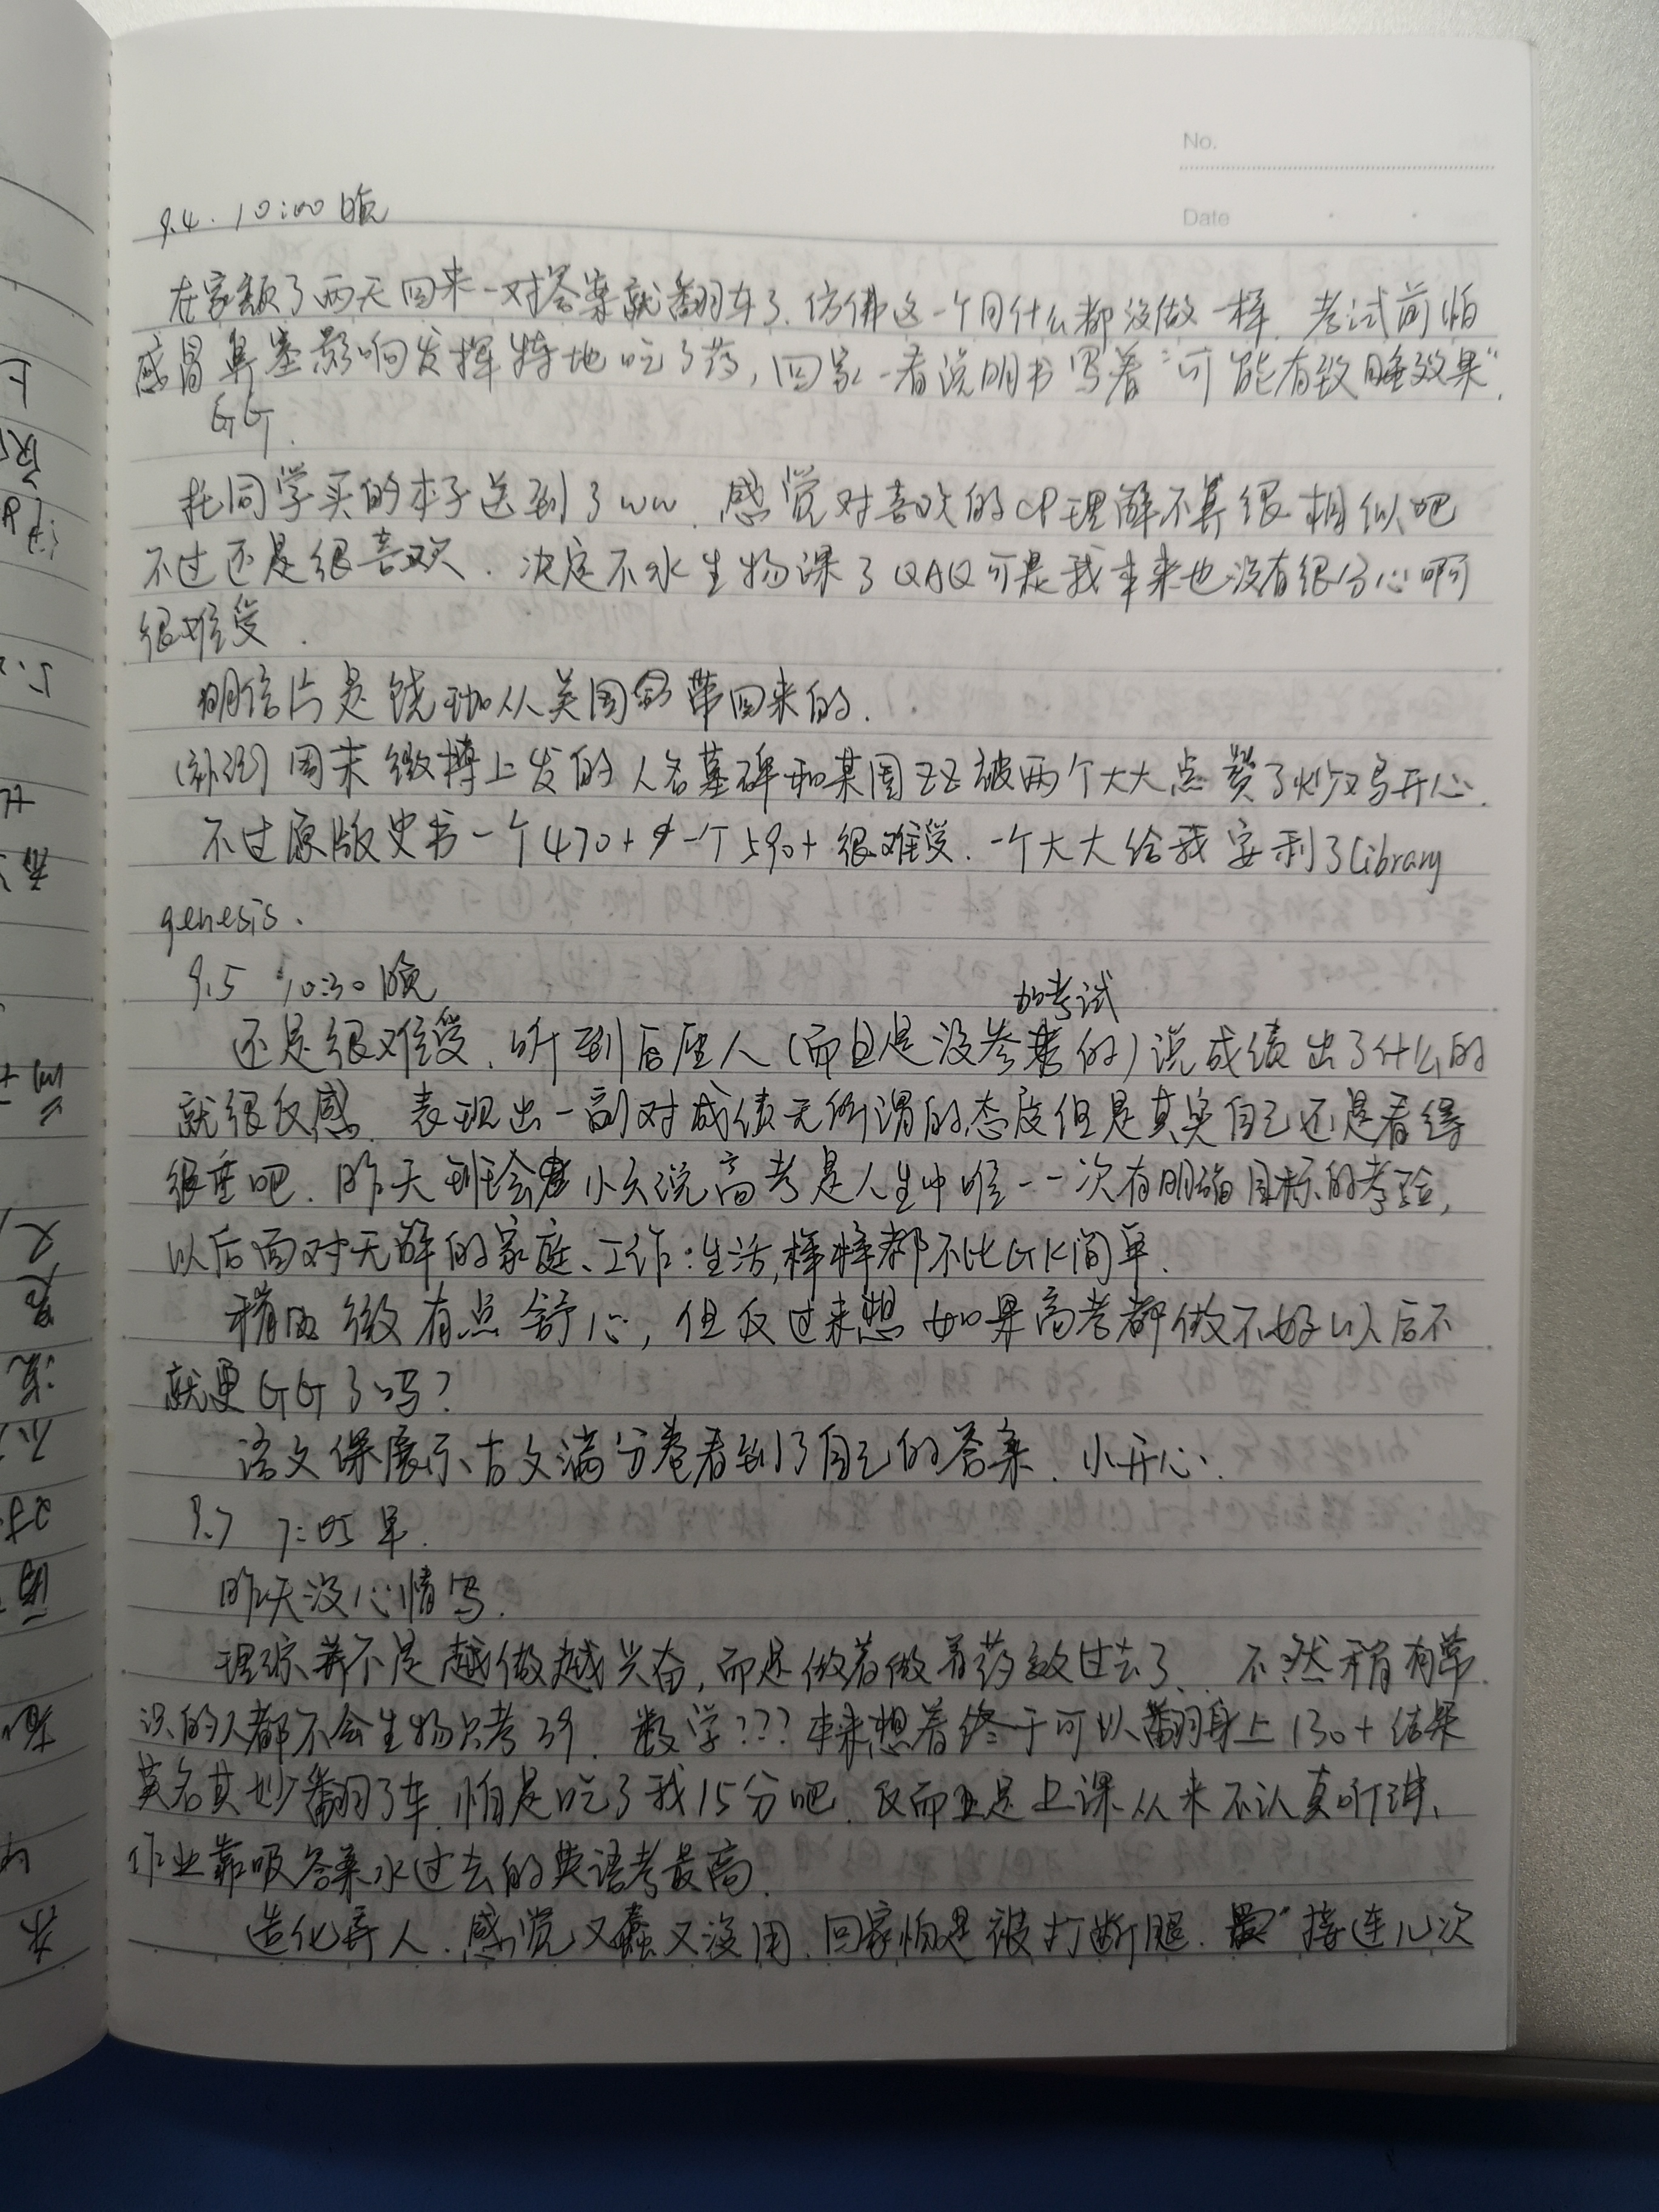 No.
Date
9.4. 10:00 晚
在家颓了两天回来一对答案就翻车了. 仿佛这一个月什么都没做一样. 考试前怕
感冒鼻塞影响发挥特地吃了药, 回家一看说明书写着"可能有致睡效果".
GG.
托同学买的本子送到了ww. 感觉对喜欢的CP理解不算很相似吧
不过还是很喜欢. 决定不水生物课了QAQ可是我本来也没有很分心啊
很难受.
明信片是饶珈从美国带回来的.
(补预) 周末微博上发的人名墓碑和某周ZZ被两个大大点赞了炒鸡开心.
不过原版史书一个470+ 一个590+ 很难受. 一个大大给我安利了Library
genesis.
9.5 10:30 晚
加考试
还是很难受. 听到后座人(而且是没参的)说成绩出了什么的
就很反感. 表现出一副对成绩无所谓的态度但是其实自己还是看得
很重吧. 昨天班会小文说高考是人生中唯一一次有明确目标的考验,
以后面对无解的家庭、工作:生活,样样都不比GK简单.
稍微有点舒心, 但反过来想如果高考都做不好以后不
就更GG了吗?
语文课展示古文满分卷看到了自己的答案. 小开心.
9.7 7:05 早.
昨天没心情写.
理综并不是越做越兴奋, 而是做着做着药效过去了.. 不然稍有常
识的人都不会生物只考39. 数学??? 本来想着终于可以翻身上130+ 结果
莫名其妙翻了车. 怕是吃了我15分吧. 反而是上课从来不认真听讲、
作业靠吸答案水过去的英语考最高.
造化弄人. 感觉又蠢又没用. 回家怕是被打断腿. "接连几次